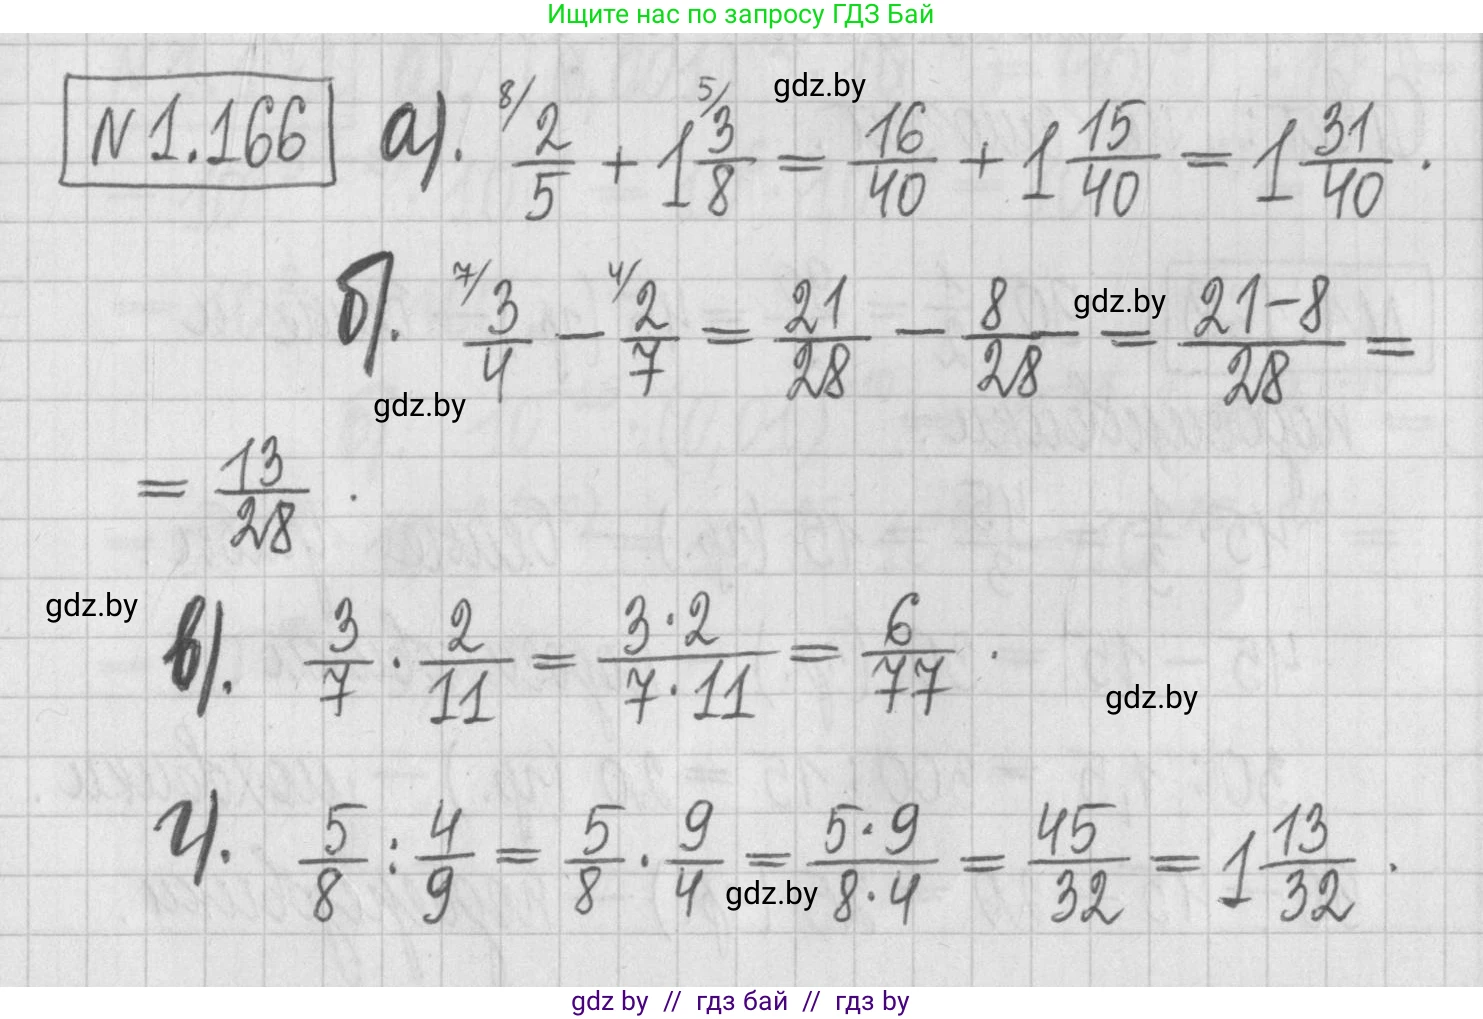 Ищите нас по запросу ГДЗ Бай
gdz.by
N 1.166 а). 8/ 2/5 + 1 5/ 3/8 = 16/40 + 1 15/40 = 1 31/40 .
б). 7/ 3/4 − 4/ 2/7 = 21/28 − 8/28 = 21−8/28 =
gdz.by
gdz.by
= 13/28 .
gdz.by
в). 3/7 · 2/11 = 3·2/7·11 = 6/77 .
gdz.by
г). 5/8 : 4/9 = 5/8 · 9/4 = 5·9/8·4 = 45/32 = 1 13/32 .
gdz.by
gdz by // гдз бай // гдз by